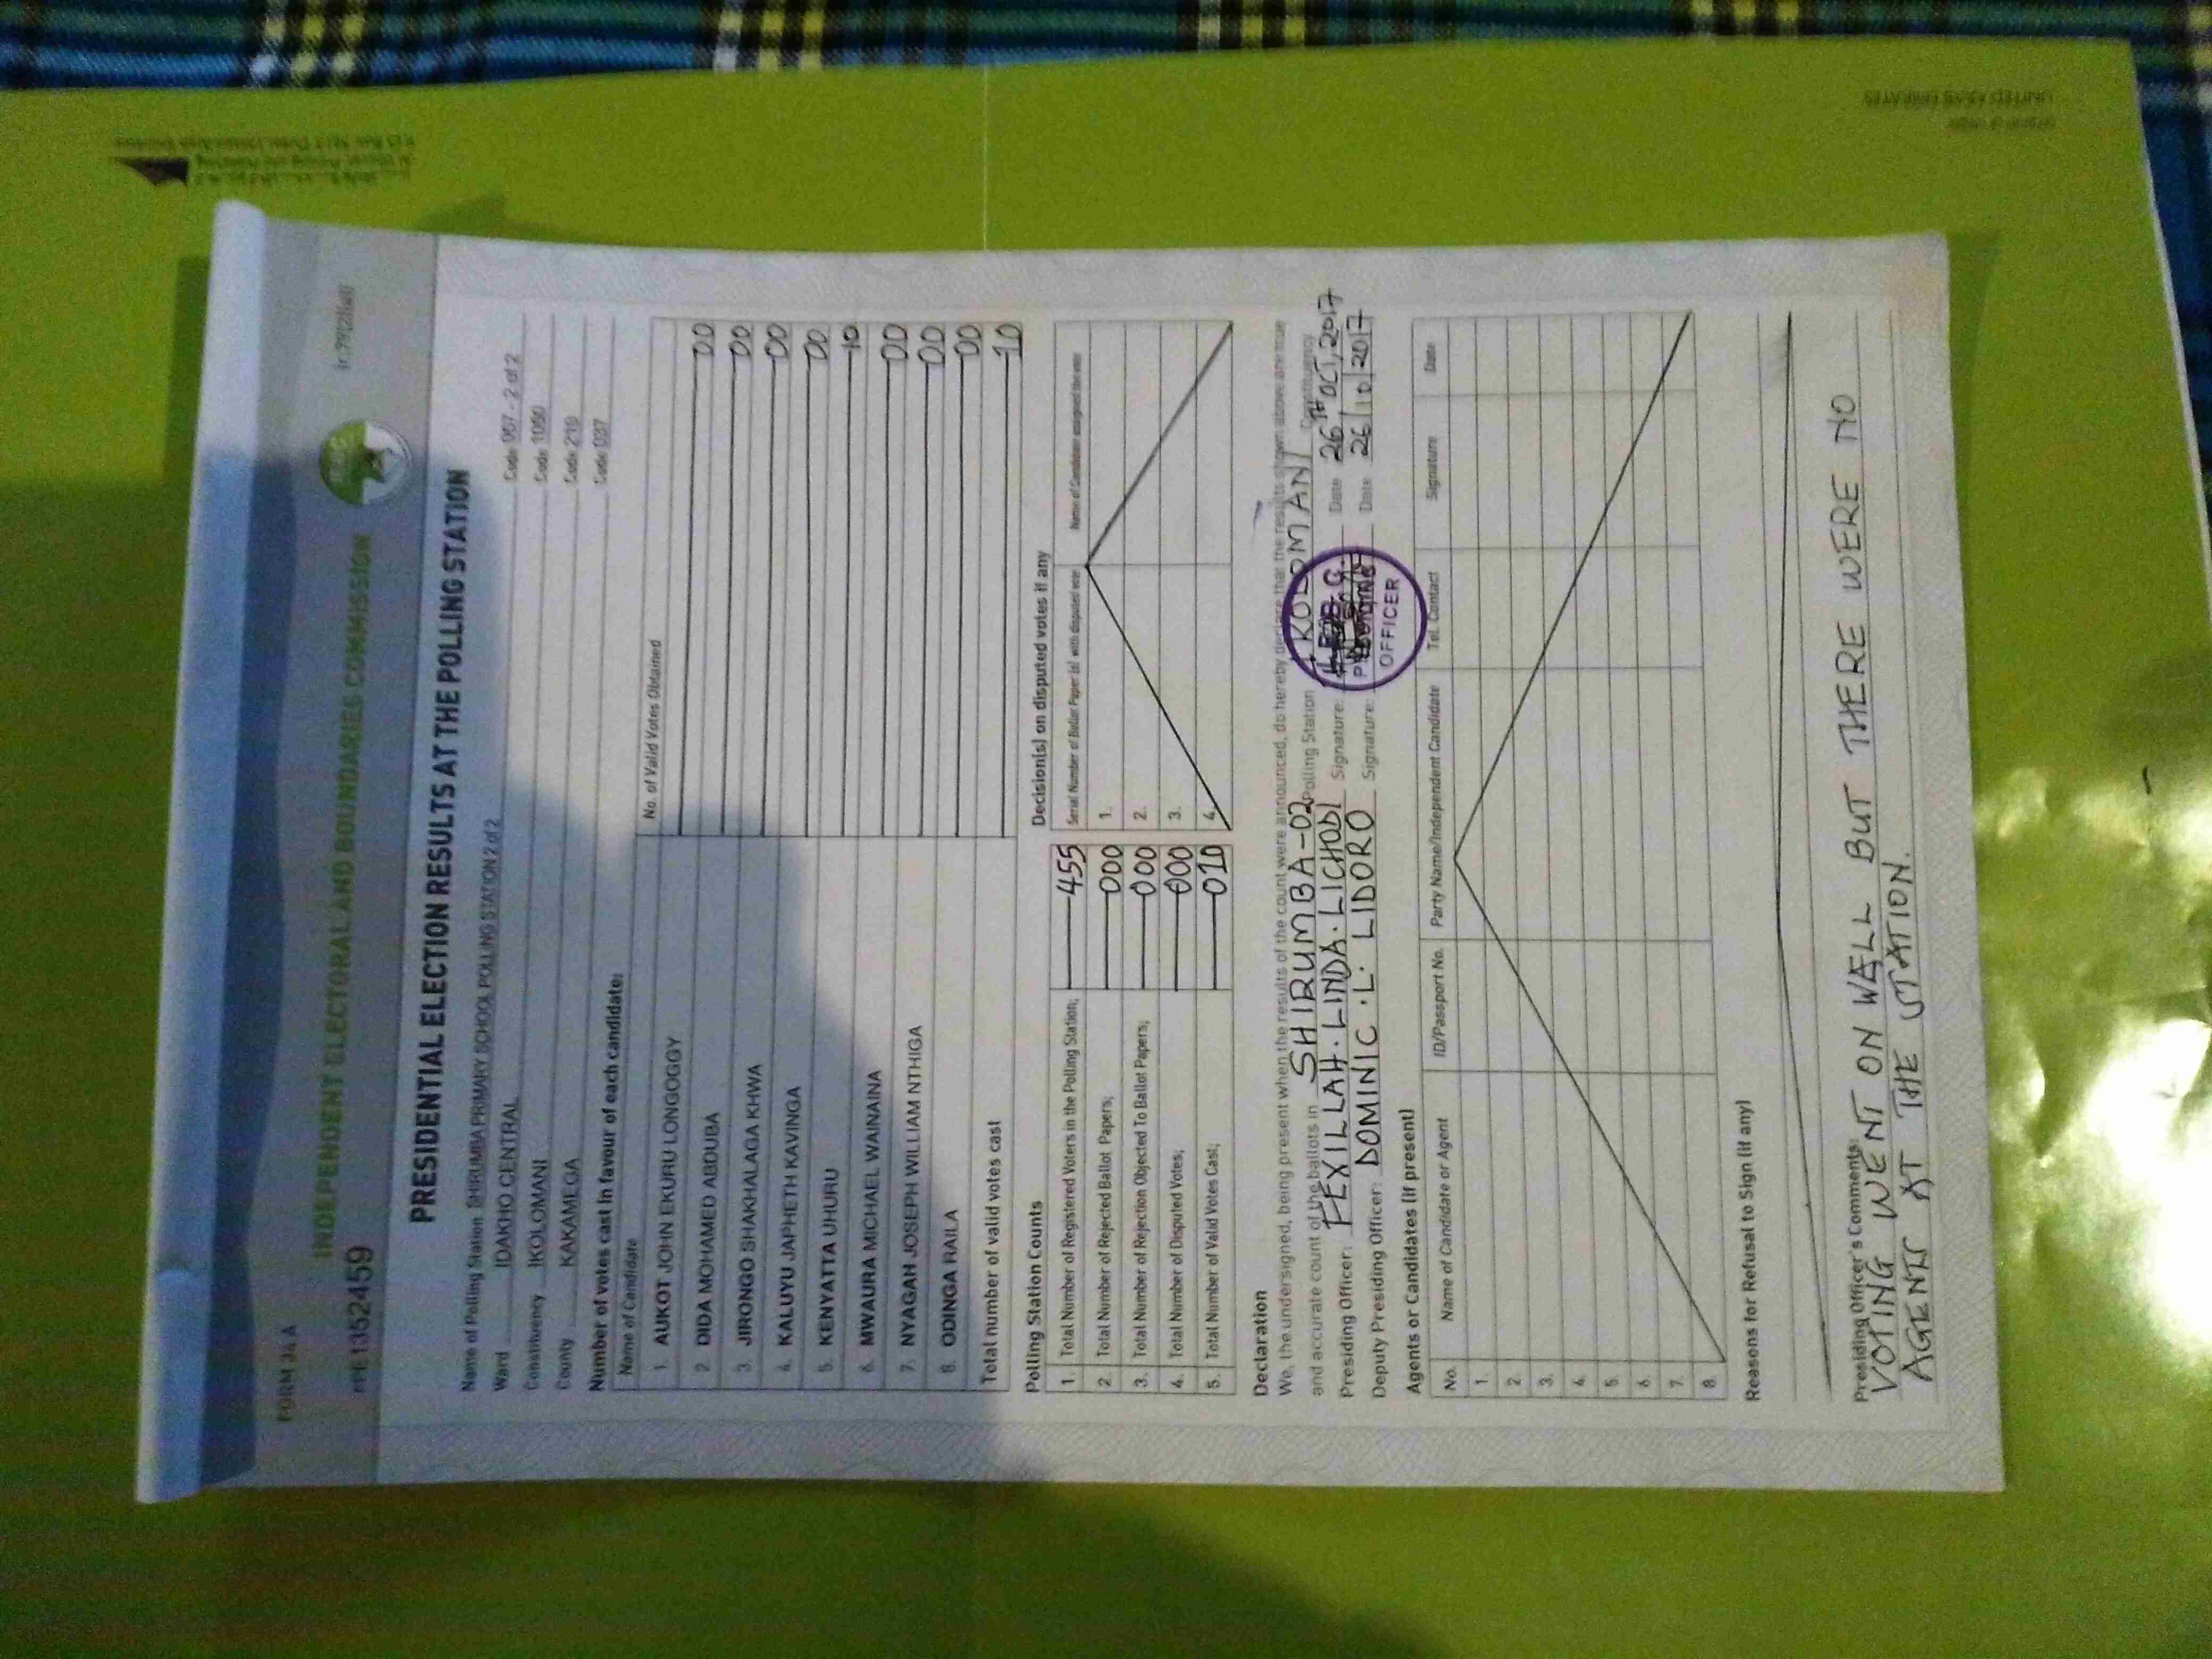 FORM 34 A
INDEPENDENT ELECTORAL AND BOUNDARIES COMMISSION
PRE1352459
PRESIDENTIAL ELECTION RESULTS AT THE POLLING STATION
Name of Polling Station SHIRUMBA PRIMARY SCHOOL POLLING STATION 2 of 2 Code 057 - 2 of 2
Ward IDAKHO CENTRAL Code 1050
Constituency IKOLOMANI Code 210
County KAKAMEGA Code 037
Number of votes cast in favour of each candidate:
Name of Candidate No. of Valid Votes Obtained
1. AUKOT JOHN EKURU LONGOGGY 00
2. DIDA MOHAMED ABDUBA 00
3. JIRONGO SHAKHALAGA KHWA 00
4. KALUYU JAPHETH KAVINGA 00
5. KENYATTA UHURU 10
6. MWAURA MICHAEL WAINAINA 00
7. NYAGAH JOSEPH WILLIAM NTHIGA 00
8. ODINGA RAILA 00
Total number of valid votes cast 10
Polling Station Counts
1. Total Number of Registered Voters in the Polling Station; 455
2. Total Number of Rejected Ballot Papers; 000
3. Total Number of Rejection Objected To Ballot Papers; 000
4. Total Number of Disputed Votes; 000
5. Total Number of Valid Votes Cast; 010
Decision(s) on disputed votes if any
Serial Number of Ballot Paper (s) with disputed vote Name of Candidate assigned the vote
1.
2.
3.
4.
Declaration
We, the undersigned, being present when the results of the count were announced, do hereby declare that the results shown above are true
and accurate count of the ballots in SHIRUMBA-02 Polling Station IKOLOMANI Constituency
Presiding Officer: FEXILLAH. LINDA. LICHODI Signature: Date 26TH OCT, 2017
Deputy Presiding Officer: DOMINIC .L. LIDORO Signature: Date 26/10/2017
PRESIDING
OFFICER
Agents or Candidates (if present)
No. Name of Candidate or Agent ID/Passport No. Party Name/Independent Candidate Tel. Contact Signature Date
1.
2.
3.
4.
5.
6.
7.
8.
Reasons for Refusal to Sign (if any)
Presiding Officer's Comments:
VOTING WENT ON WELL BUT THERE WERE NO
AGENTS AT THE STATION.
UNITED ARAB EMIRATES